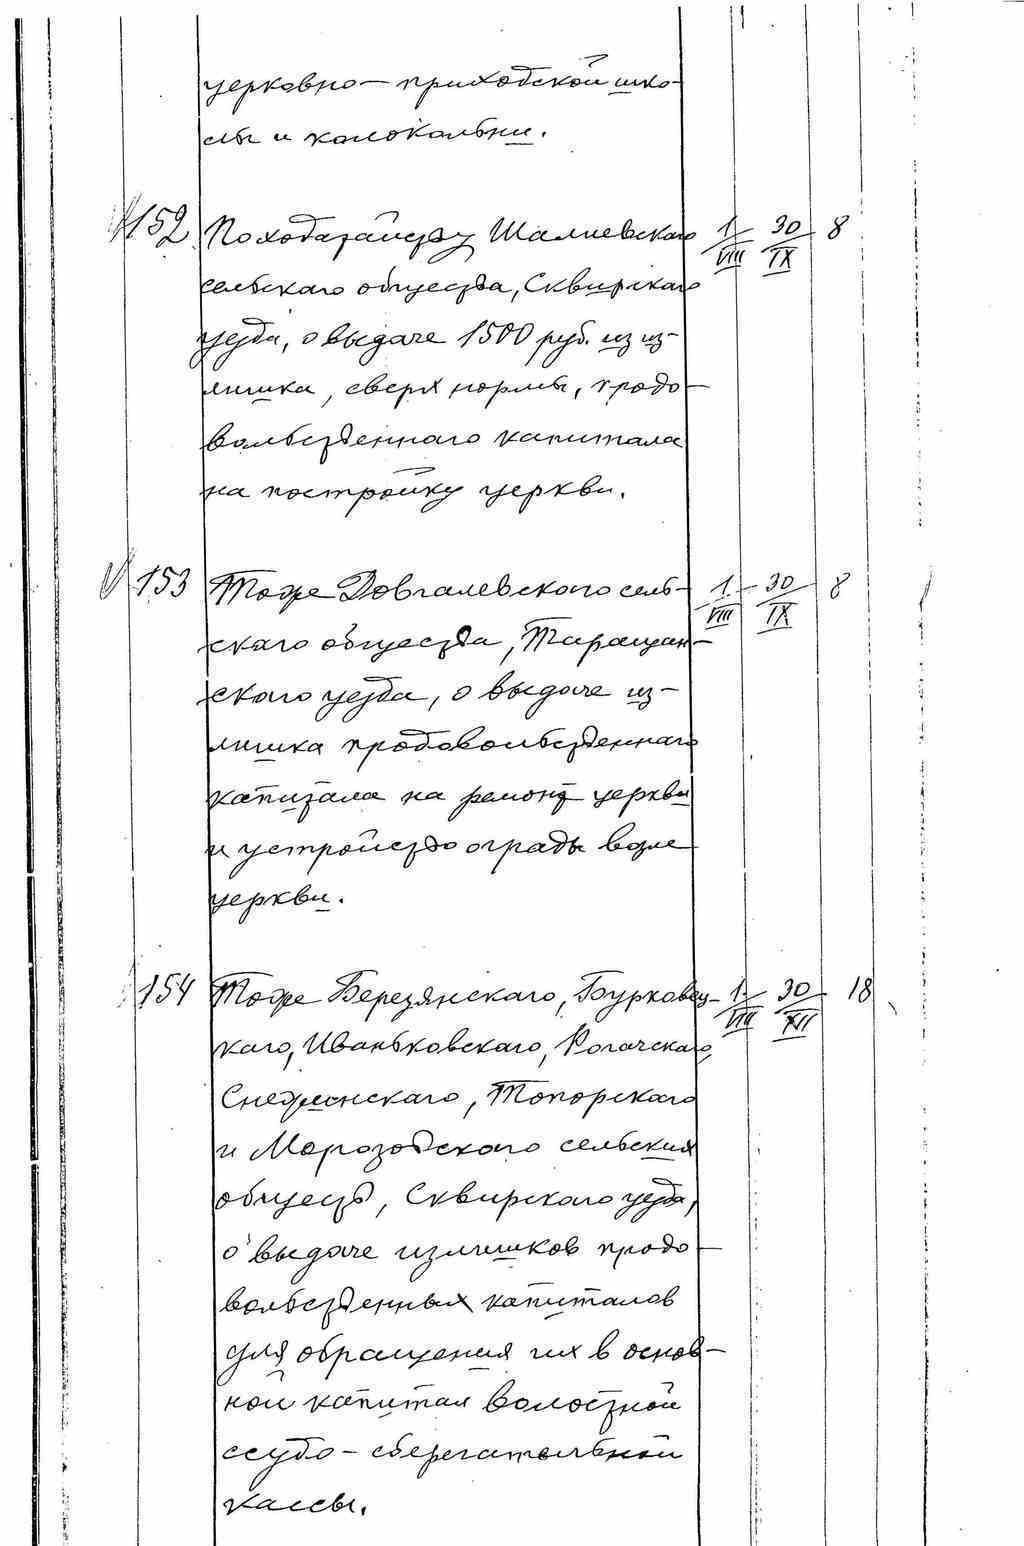 церковно-приходской шко-
лы и колокольни.
152 По ходатайству Шалиевскаго 1/VIII 30/IX 8
сельскаго общества, Сквирскаго
уезда, о выдаче 1500 руб. из из-
лишка, сверх нормы, продо-
вольственнаго капитала
на постройку церкви.
153 Тоже Довгалевского сель- 1/VIII 30/IX 8
скаго общества, Таращан-
ского уезда, о выдаче из-
лишка продовольственнаго
капитала на ремонт церкви
и устройство ограды возле
церкви.
154 Тоже Березянскаго, Бурковец- 1/VIII 30/XII 18
каго, Иваньковскаго, Рогачскаго,
Снежнянскаго, Топорскаго
и Морозовского сельских
обществ, Сквирскаго уезда,
о выдаче излишков продо-
вольственных капиталов
для обращения их в основ-
ной капитал волостной
ссудо-сберегательной
кассы.